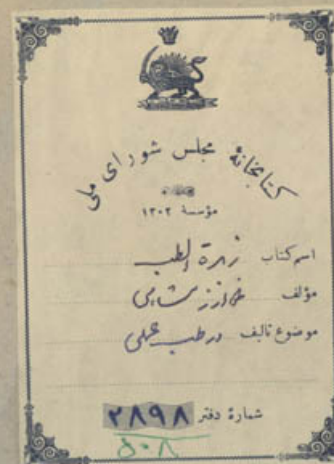 کتابخانهٔ مجلس شورای ملی
مؤسسهٔ ۱۳۰۲
اسم کتاب زبدة الطب
مؤلف خوارزمشاهی
موضوع تالیف در طب عملی
شمارهٔ دفتر ۲۸۹۸
۵۰۸